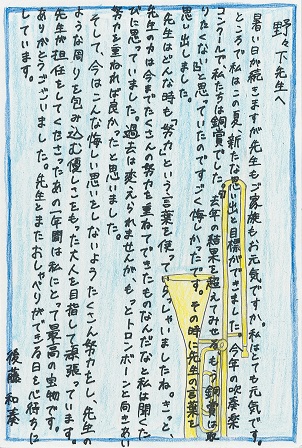 野々下先生へ
暑い日が続きますが先生もご家族もお元気ですか。私はとても元気です。
ところで私はこの夏、新たな思い出と目標ができました。今年の吹奏楽
コンクールで私たちは銅賞でした。去年の結果を超えてみせる、もう銅賞は取
りたくない。と思っていたのですごく悔しかたです。その時に先生の言葉を
思い出しました。
先生はどんな時も「努力」という言葉を使ってらっしゃいましたね。きっと、
先生の力は今までたくさんの努力を重ねてできたものなんだなと私は聞くた
びに思っていました。過去は変えられませんが、もっとトロンボーンと向きあい
努力を重ねれば良かったと思いました。
そして、今はこんな悔しい思いをしないようたくさん努力をし、先生の
ような周りを包み込む優しさをもった大人を目指して頑張っています。
先生が担任をしてくださったあの一年間は私にとって最高の宝物です。
ありがとうございました。先生とまたおしゃべりができる日を心待ちに
しています。
後藤和奏